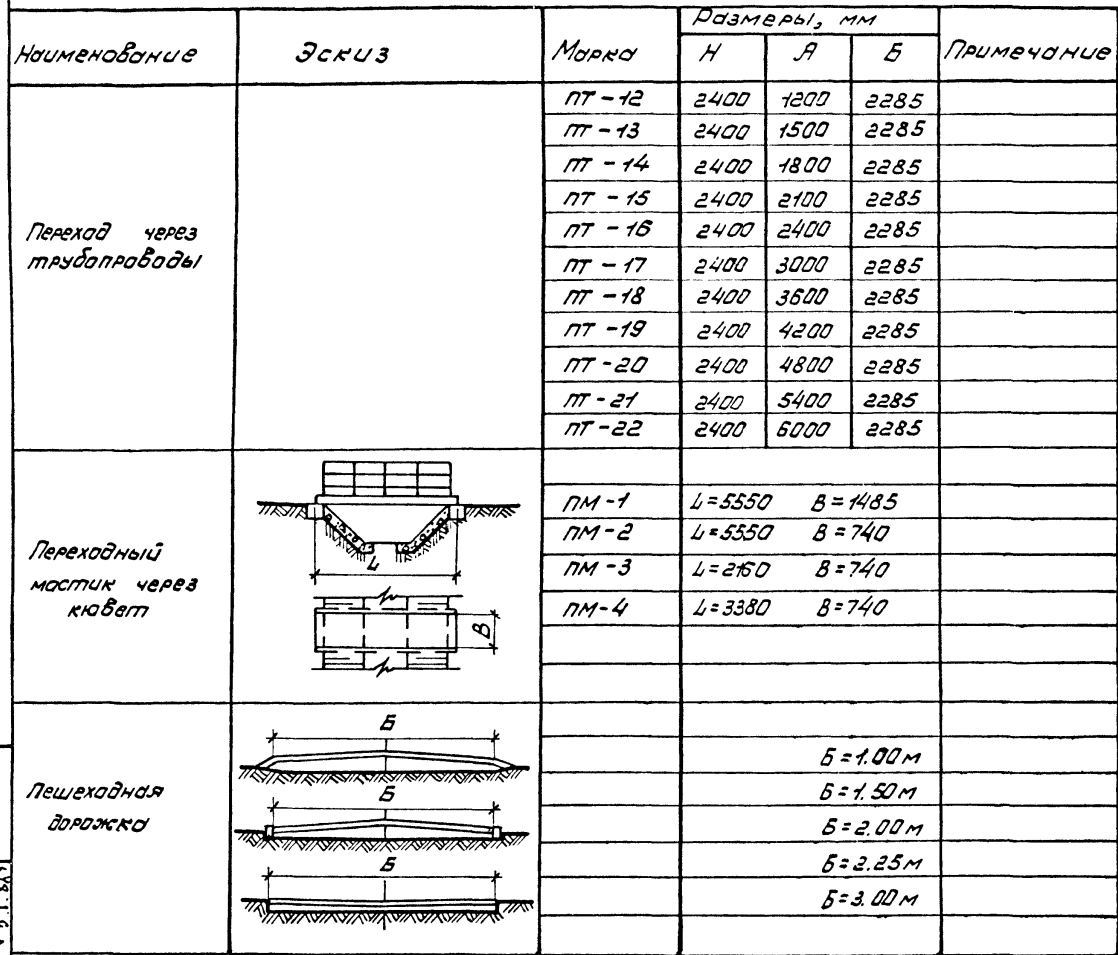 Размеры, мм
Наименование Эскиз Марка Н А Б Примечание
Переход через
трубопроводы
ПТ-12 2400 1200 2285
ПТ-13 2400 1500 2285
ПТ-14 2400 1800 2285
ПТ-15 2400 2100 2285
ПТ-16 2400 2400 2285
ПТ-17 2400 3000 2285
ПТ-18 2400 3600 2285
ПТ-19 2400 4200 2285
ПТ-20 2400 4800 2285
ПТ-21 2400 5400 2285
ПТ-22 2400 6000 2285
Переходный
мостик через
кювет
L
В
ПМ-1 L=5550 В=1485
ПМ-2 L=5550 В=740
ПМ-3 L=2160 В=740
ПМ-4 L=3380 В=740
Пешеходная
дорожка
Б
Б
Б
Б=1.00м
Б=1.50м
Б=2.00м
Б=2.25м
Б=3.00м